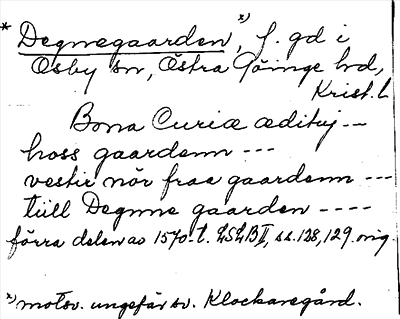 * Degnegaarden, x) f. gd i
Osby sn, Östra Göinge hd,
Krist. L
Bona Curiæ ædituj --
hoss gaardenn ---
vestir nör fraa gaardenn ---
tiill Degnne gaarden ----
förra delen av 1570-t. LSLB II, ss. 128, 129. orig.
x) motsv. ungefär sv. Klockaregård.